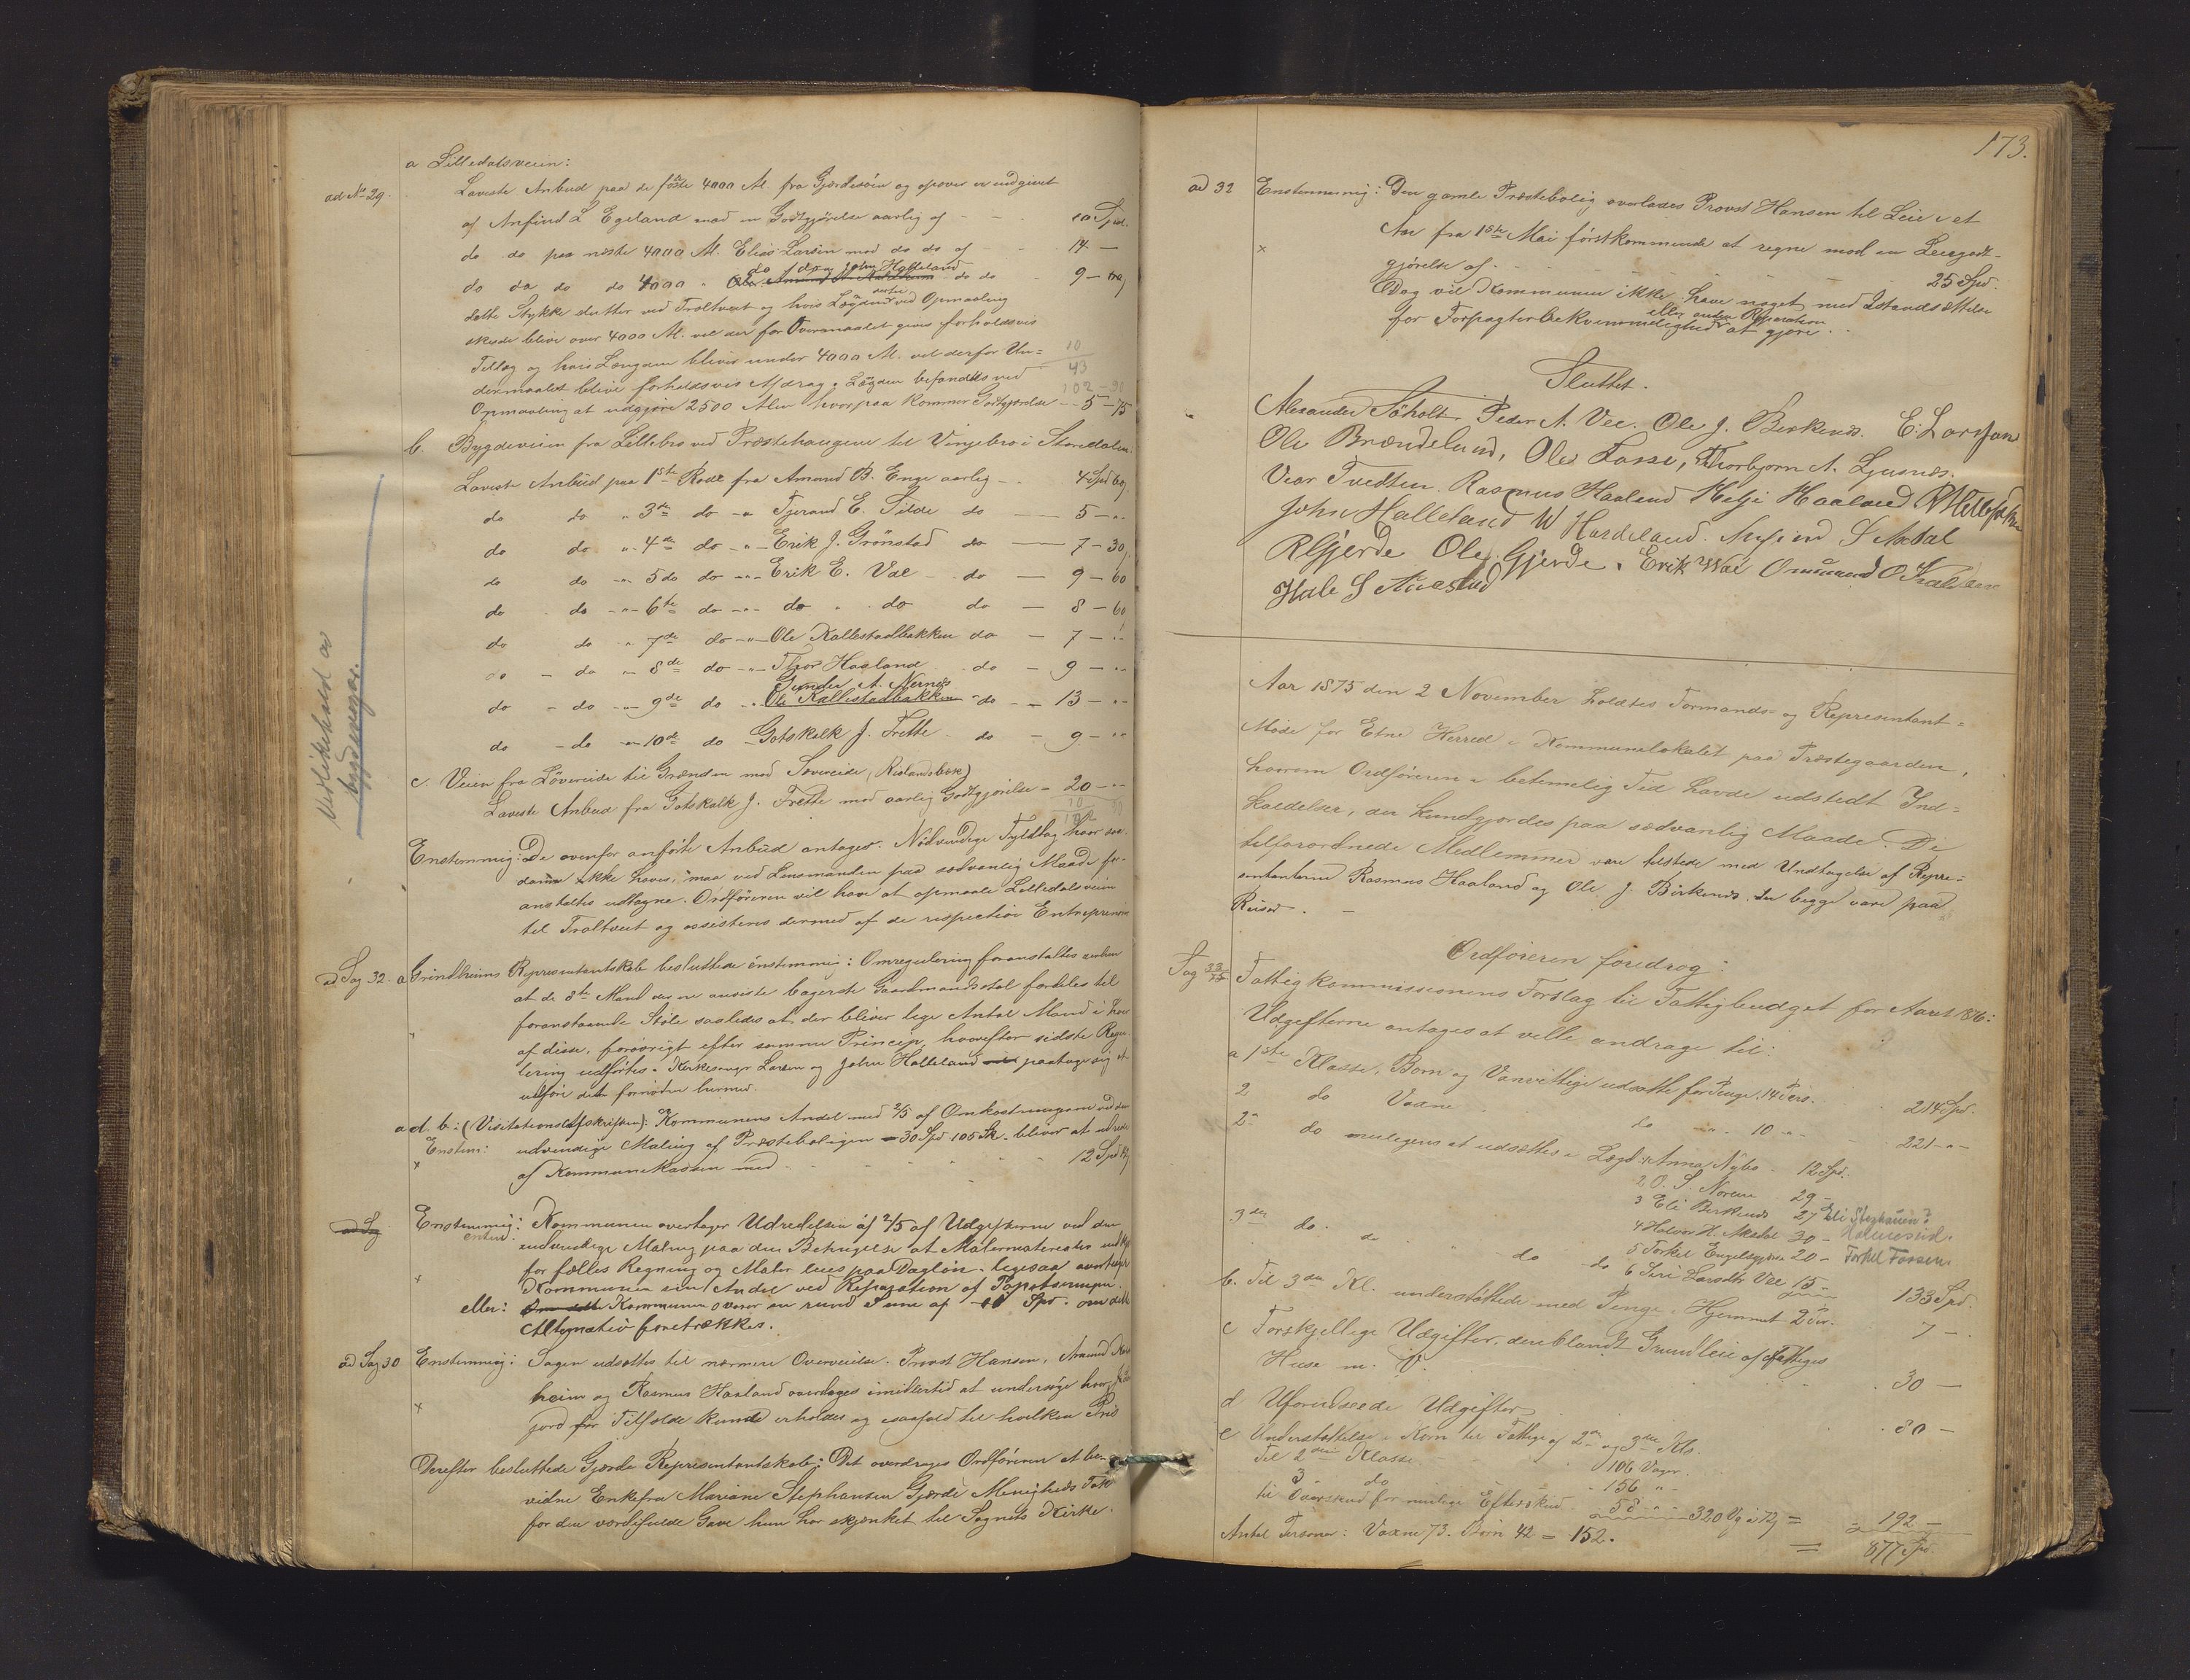 a Lilledalsveien:
ad No 29. Laveste Anbud paa de første 4000 Al. fra Gjærdesøen og opover er indgivet
af Anfind L Egeland mod en Godtgjørelse aarlig af - - - 10 Spd.
do do paa næste 4000 Al. Elias Larsen mod do do af - - 14 —
do do do do 4000 " do do og John Halleland do do - 9 —
dette Stykke slutter ved Traltveit og hvis Længden derfra ved Opmaaling
skulde blive over 4000 Al. vil der for Overmaalet gives forholdsvis
Tillæg og hvis Længden bliver under 4000 Al. vil derfor Un=
dermaalet blive forholdsvis Afdrag. Længden befandtes ved
Opmaaling at udgjøre 2500 Alen hvorpaa kommer Godtgjørelse - 5 - 75
10
43
102 - 90
b. Bygdeveien fra Lillebro ved Præstehaugene til Vinjebro i Stordalen.
Laveste Anbud paa 1ste Rode fra Amund B. Enge aarlig - - 4 Spd 60
do do " 3de do - " Tjerand E. Silde do — 5 - "
do do " 4de do - " - Erik J. Grønstad do — 7 - 30
do do - " 5 do do - " - Erik E. Vae - do — 9 - 60
do do - " - 6te do - " - do " do do — 8 - 60
do do " 7de do - " - Ole Kallestadbakken do — 7 - "
do - do - " 8de do - " - Thor Haaland - do — 9 - "
Gunder A. Nernes
do - do - " 9de do - " Ole Kallestadbakken - do — 13 - "
do - do - " 10de do - Gotskalk J. Frette - do — 9 - "
Vedlikehold av
bygdeveger.
c. Veien fra Løvereide til Grænden mod Søvereide (Rislandsbæk)
Laveste Anbud fra Gotskalk J. Frette mod aarlig Godtgjørelse - 20 - "
Enstemmig: De ovenfor anførte Anbud antages. Nødvendige Fyldtag hvor saa-
danne ikke haves, maa ved Lensmanden paa sædvanlig Maade for-
anstaltes udtagne. Ordføreren vil have at opmaale Lilledalsveien
til Traltveit og assisteres dermed af de respective Entreprenører
ad Sag 32. a Grindheims Representantskab besluttede enstemmig: Omregulering foranstaltes saaledes
at de 8te Mand der er anviste bagerste Gaardmandsstol fordeles til
foranstaaende Stole saaledes at der bliver lige Antal Mand i hver
af disse, forøvrigt efter samme Princip, hvorefter sidste Regu
lering udførtes. Kirkesanger Larsen og John Halleland paatage sig at
udføre det fornødne hermed.
ad. b: (Visitations Afskriften): Kommunens Andel med 2/5 af Omkostningerne ved den
Enstem: udvendige Maling af Præsteboligen - 30 Spd 105 Sk. bliver at udrede
x af Kommunekassen med - - - - 12 Spd
ad Sag Enstemmig: Kommunen overtager Udredelsen af 2/5 af Udgifterne ved den
enten: indvendige Maling paa den Betingelse at Malermaterialier
for fælles Regning og Maler leies paa Dagløn. Ligesaa overtager
x Kommunen sin Andel ved Reparation af Tapetseringen.
eller: Om dette Kommunen overer en rund Sum af 10 Spd. om dette
Alternativ foretrækkes.
ad Sag 30 Enstemmig: Sagen udsættes til nærmere Overveielse. Provst Hansen, Amund
heim og Rasmus Haaland overdrages imidlertid at undersøge hvor
x jord for Tilfælde kunde erholdes og isaafald til hvilken Pris
Derefter besluttede Gjærde Representantskab: Det overdrages Ordføreren at be-
vidne Enkefru Mariane Stephansen Gjærde Menigheds Tak
for den værdifulde Gave hun har skjænket til Sognets Kirke.
173.
ad 32 Enstemmig: Den gamle Præstebolig overlades Provst Hansen til Leie i et
Aar fra 1ste Mai førstkommende at regne mod en Leiegodt-
x gjørelse af - - - - - 25 Spd.
Dog vil Kommunen ikke have noget med Istandsættelse
eller anden Reparation
for Forpagterbekvemmelighed at gjøre.
Sluttet.
Alexander Søholt Peder A. Vee. Ole J. Birkenes. E. Larssen
Ole Brændelund, Ole Lasse, Thorbjørn A. Ljusnes.
Vear Tvedten. Rasmus Haaland Helje Haaland
John Halleland W Hardeland. Anfind S Mædal
R Gjerde Ole Gjerde. Erik Wae Omund O
Hale S Austad
Aar 1875 den 2 November holdtes Formands- og Representant=
Møde for Etne Herred i Kommunelokalet paa Præstegaarden,
hvorom Ordføreren i betimelig Tid havde udstedt Ind=
kaldelser, der kundgjordes paa sædvanlig Maade. De
tilforordnede Medlemmer vare tilstede med Undtagelse af Repre=
sentanterne Rasmus Haaland og Ole J. Birkenes. der begge vare paa
Reiser. -
Ordføreren foredrog:
Sag 33/75 Fattigkommissionens Forslag til Fattigbudget for Aaret 1876:
Udgifterne antages at ville andrage til:
a 1ste Klasse, Børn og Vanvittige udsatte for Penge. 14 Pers. - 214 Spd.
2 do Voxne - do - " - 10 - " - - 221 - " -
2 - do muligens at udsættes i Lægd: 1 Anna Nybø - 12 Spd.
2 O. S. Norem 29 -
3 Eli Birkenes 27 Eli Steghauen?
4 Halvor H. Mædal 30 -
3die do. do do do 5 Torkel Engelsgjerd 20 - Torkel Fossen
6 Siri Larsdtr Vee 15 - 133 Spd.
b. Til 3die Kl. understøttede med Penge i Hjemmet 2 Per. 7 -
c Forskjellige Udgifter, deriblandt Grundleie af Fattiges
Huse m. V. - 30 -
d Uforudseede Udgifter - 80 -
e Understøttelse i Korn til Fattige af 2den og 3die Kls.
Til 2den Klasse - 106 Vager.
3 do - 156 " -
til Oversend for mulige Efterskud - 58 " - 320 Vg à 72 = 192 -
Antal Personer: Voxne 73. Børn 42 = 152. = 877 Spd.